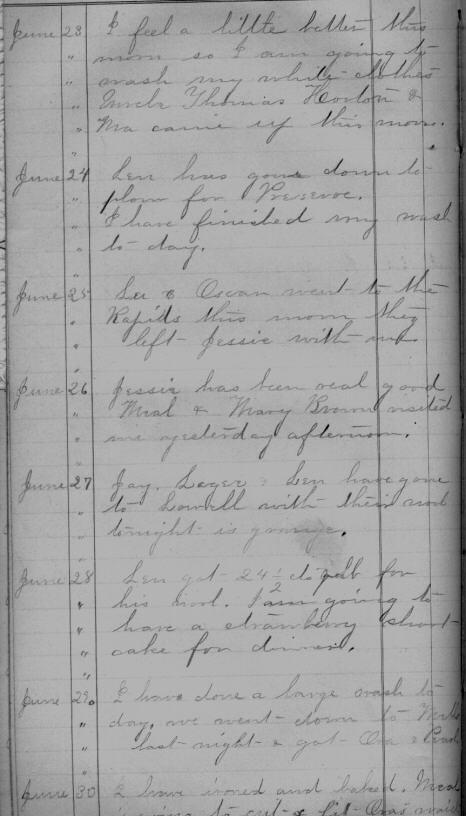 June 23 I feel a little better this
" morn so I am going to
" wash my white clothes
" Uncle Thomas Horton &
" Ma came up this morn.
"
June 24 Len has gone down to
" plow for
" I have finished my wash
" to day.
"
June 25 & Oscar went to the
" Rapids this morn they
" left Jessie with me
"
June 26 Jessie has been real good
" & Mary Brown visited
" me yesterday afternoon.
"
June 27 Jay. & Len have gone
" to Lowell with their wool
" tonight is grange.
"
June 28 Len got 24 1/2 for
" his wool. I am going to
" have a strawberry short
" cake for dinner.
"
June 29. I have done a large wash to
" day, we went down to
" last night & got &
"
June 30 I have ironed and baked.
to cut & fit